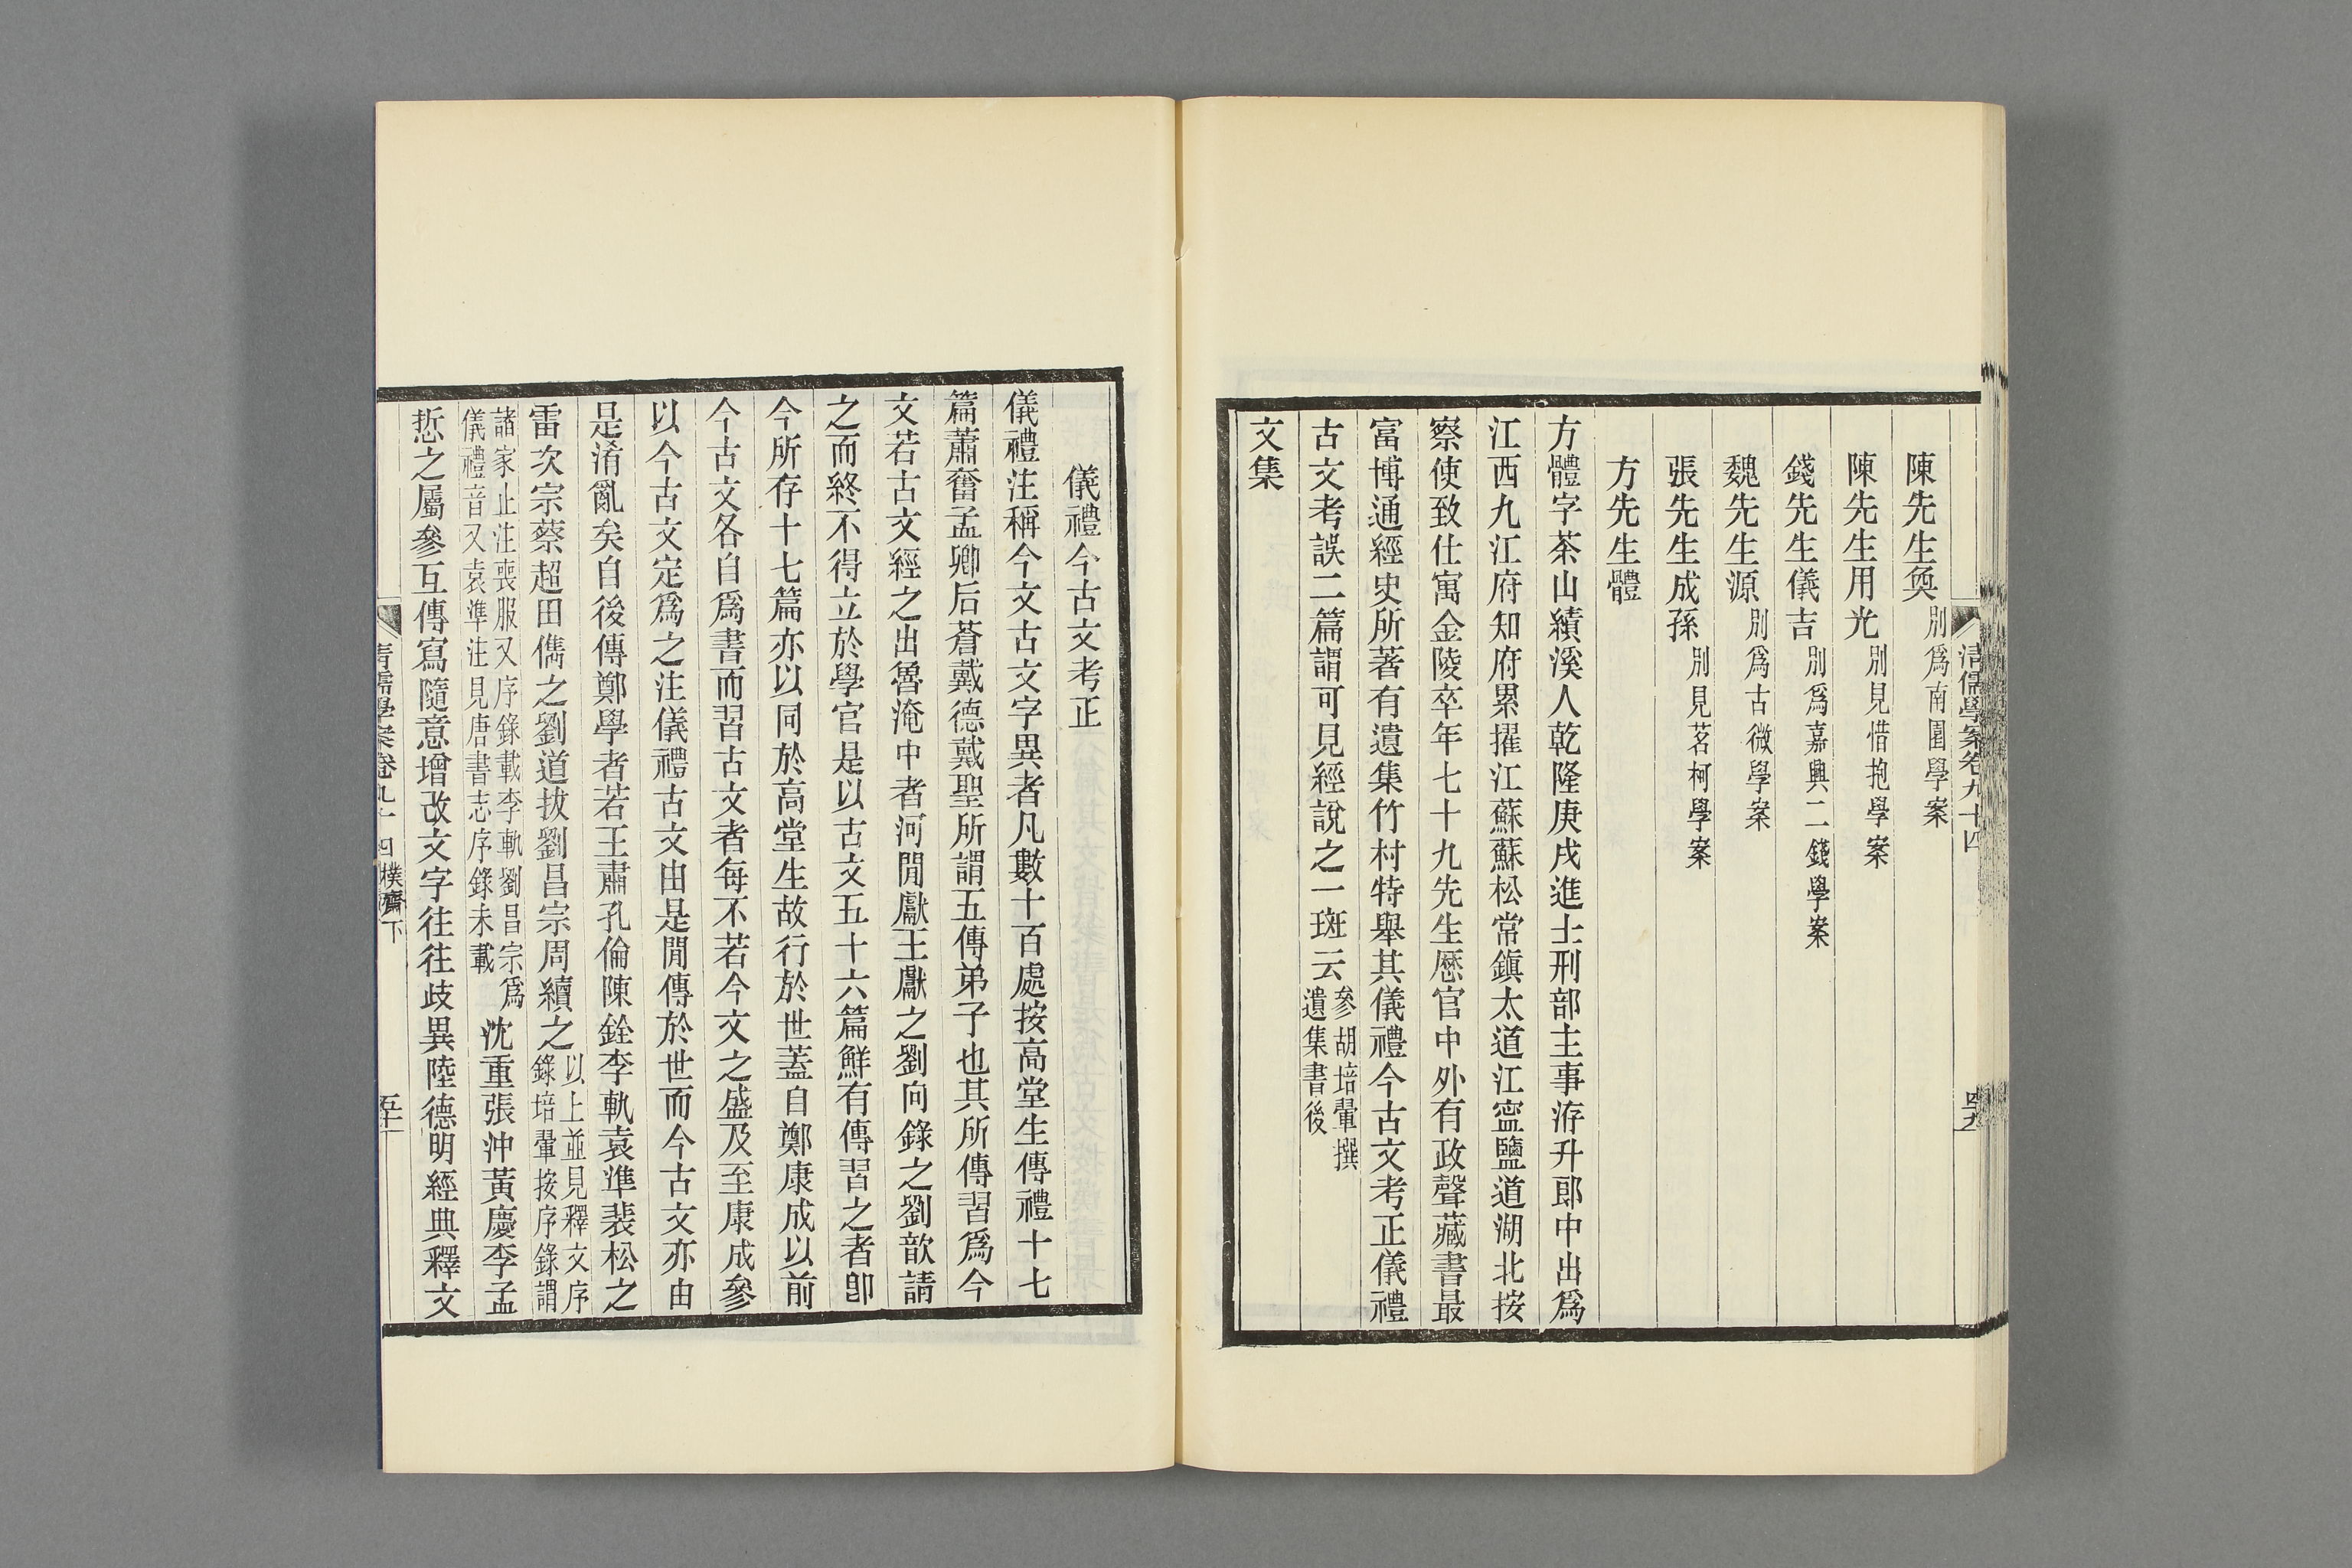 清儒學案卷九十四
陳先生奐別爲南園學案
陳先生用光別見惜抱學案
錢先生儀吉別爲嘉興二錢學案
魏先生源別爲古微學案
張先生成孫別見茗柯學案
方先生體
方體字茶山績溪人乾隆庚戌進士刑部主事洊升郎中出爲
江西九江府知府累擢江蘇蘇松常鎮太道江寍鹽道湖北按
察使致仕寓金陵卒年七十九先生歷官中外有政聲藏書最
富博通經史所著有遺集竹村特舉其儀禮今古文考正儀禮
古文考誤二篇謂可見經說之一斑云參胡培翬撰
遺集書後
文集
儀禮今古文考正
儀禮注稱今文古文字異者凡數十百處按高堂生傳禮十七
篇蕭奮孟卿后蒼戴德戴聖所謂五傳弟子也其所傳習爲今
文若古文經之出魯淹中者河閒獻王獻之劉向錄之劉歆請
之而終不得立於學官是以古文五十六篇鮮有傳習之者卽
今所存十七篇亦以同於高堂生故行於世蓋自鄭康成以前
今古文各自爲書而習古文者每不若今文之盛及至康成參
以今古文定爲之注儀禮古文由是閒傳於世而今古文亦由
是淆亂矣自後傳鄭學者若王肅孔倫陳銓李軌袁準裴松之
雷次宗蔡超田儁之劉道拔劉昌宗周續之以上並見釋文序
錄培翬按序錄謂
諸家止注喪服又序錄載李軌劉昌宗爲
儀禮音又袁準注見唐書志序錄未載沈重張沖黃慶李孟
悊之屬參互傳寫隨意增改文字往往歧異陸德明經典釋文
清儒學案卷九十四樸齋下